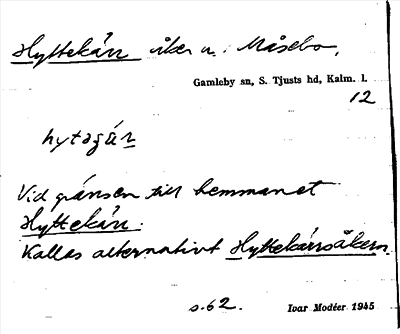 Hyttekärr åker u. Måsebo,
Gamleby sn, S. Tjusts hd, Kalm. l.
12
hytəçär
Vid gränsen till hemmanet
Hyttekärr.
Kallas alternativt Hyttekärrsåkern.
s. 62. Ivar Modéer 1945